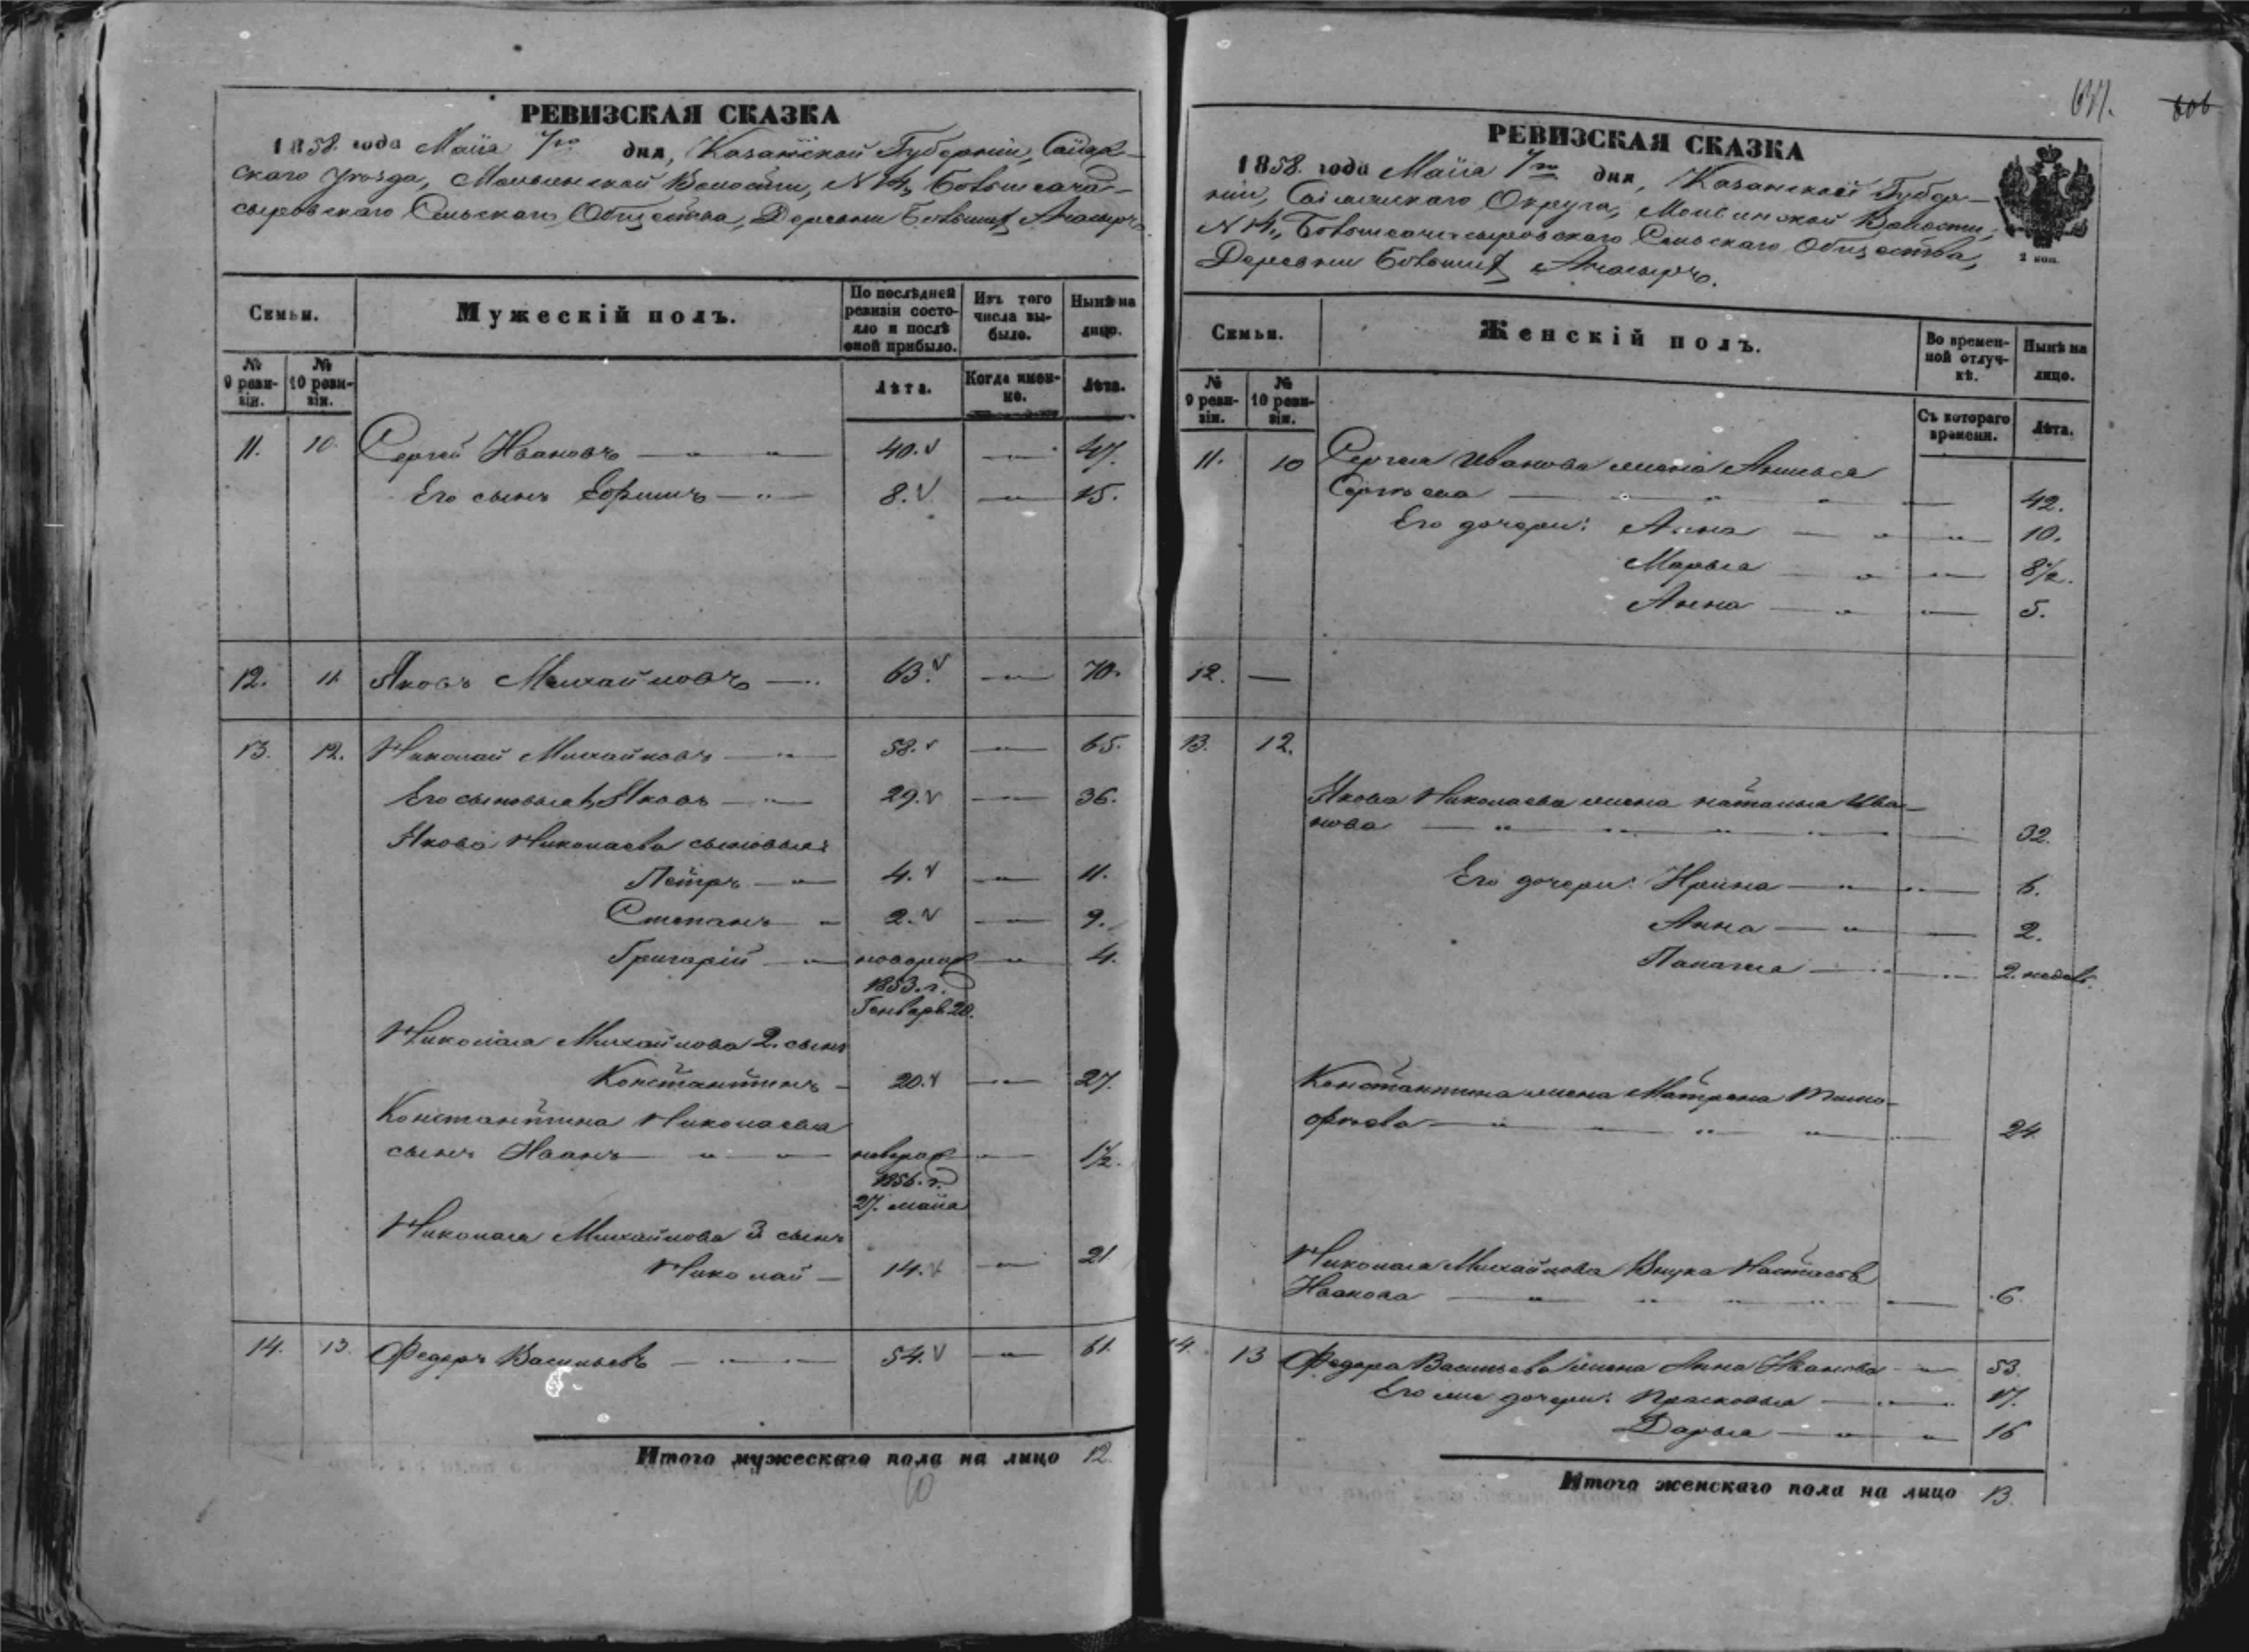 РЕВИЗСКАЯ СКАЗКА
1858. года Маія 7го дня, Казанской Губерніи,
скаго уѣзда, Волости, №
Сельскаго Общества, Деревни Большихъ
Семьи.
Мужескій полъ.
По послѣдней ревизіи состояло и послѣ оной прибыло.
Изъ того числа выбыло.
Нынѣ на лицо.
№ 9 ревизіи.
№ 10 ревизіи.
Лѣта.
Когда именно.
Лѣта.
11. 10. Сергей Ивановъ — „ — „ 40. — „ — 47.
Его сынъ Ефимъ — „ — 8. — „ — 15.
12. 11. Яковъ Михайловъ — „ 63. — „ — 70.
13. 12. Николай Михайловъ — „ 58. — „ — 65.
Его сыновья 1, Яковъ — „ — 29. — „ — 36.
Якова Николаева сыновья:
Петръ — „ — 4. — „ — 11.
Степанъ — „ 2. — „ — 9.
Григорій — „ новорож — „ — 4.
1853. г.
Генваря 20.
Николая Михайлова 2. сынъ
Константинъ — 20. — „ — 27.
Константина Николаева
сынъ Иванъ — „ — „ новорож — „ — 1½.
1856. г.
27. маія
Николая Михайлова 3 сынъ
Николай — 14. — „ — 21
14. 13. Федоръ Васильевъ — „ — „ 54. — „ — 61.
Итого мужескаго пола на лицо 12.
10
РЕВИЗСКАЯ СКАЗКА
1858. года Маія 7го дня, Казанской Губер-
ніи, Округа, Волости,
№ Сельскаго Общества,
Деревни Большихъ
2 коп.
Семьи.
Женскій полъ.
Во временной отлучкѣ.
Нынѣ на лицо.
№ 9 ревизіи.
№ 10 ревизіи.
Съ котораго времени.
Лѣта.
11. 10 Сергея Иванова жена
Сергѣева — „ — „ — 42.
Его дочери: Анна — „ — „ — 10.
Марья — „ — „ — 8½.
Анна — „ — „ — 5.
12. —
13. 12.
Якова Николаева жена Наталья Ива-
нова — „ — „ — „ — 32.
Его дочери: Ирина — „ — „ — 6.
Анна — „ — 2.
— „ — „ — 2. недѣл.
Константина жена Матрена Тимо-
фѣева — „ — „ — „ — 24
Николая Михайлова Внука Настасья
Иванова — „ — „ — „ — 6.
14. 13 Федора Васильева жена Анна Иванова — „ — 53.
Его же дочери: Прасковья — „ — 17.
Дарья — „ — „ — 16
Итого женскаго пола на лицо 13.